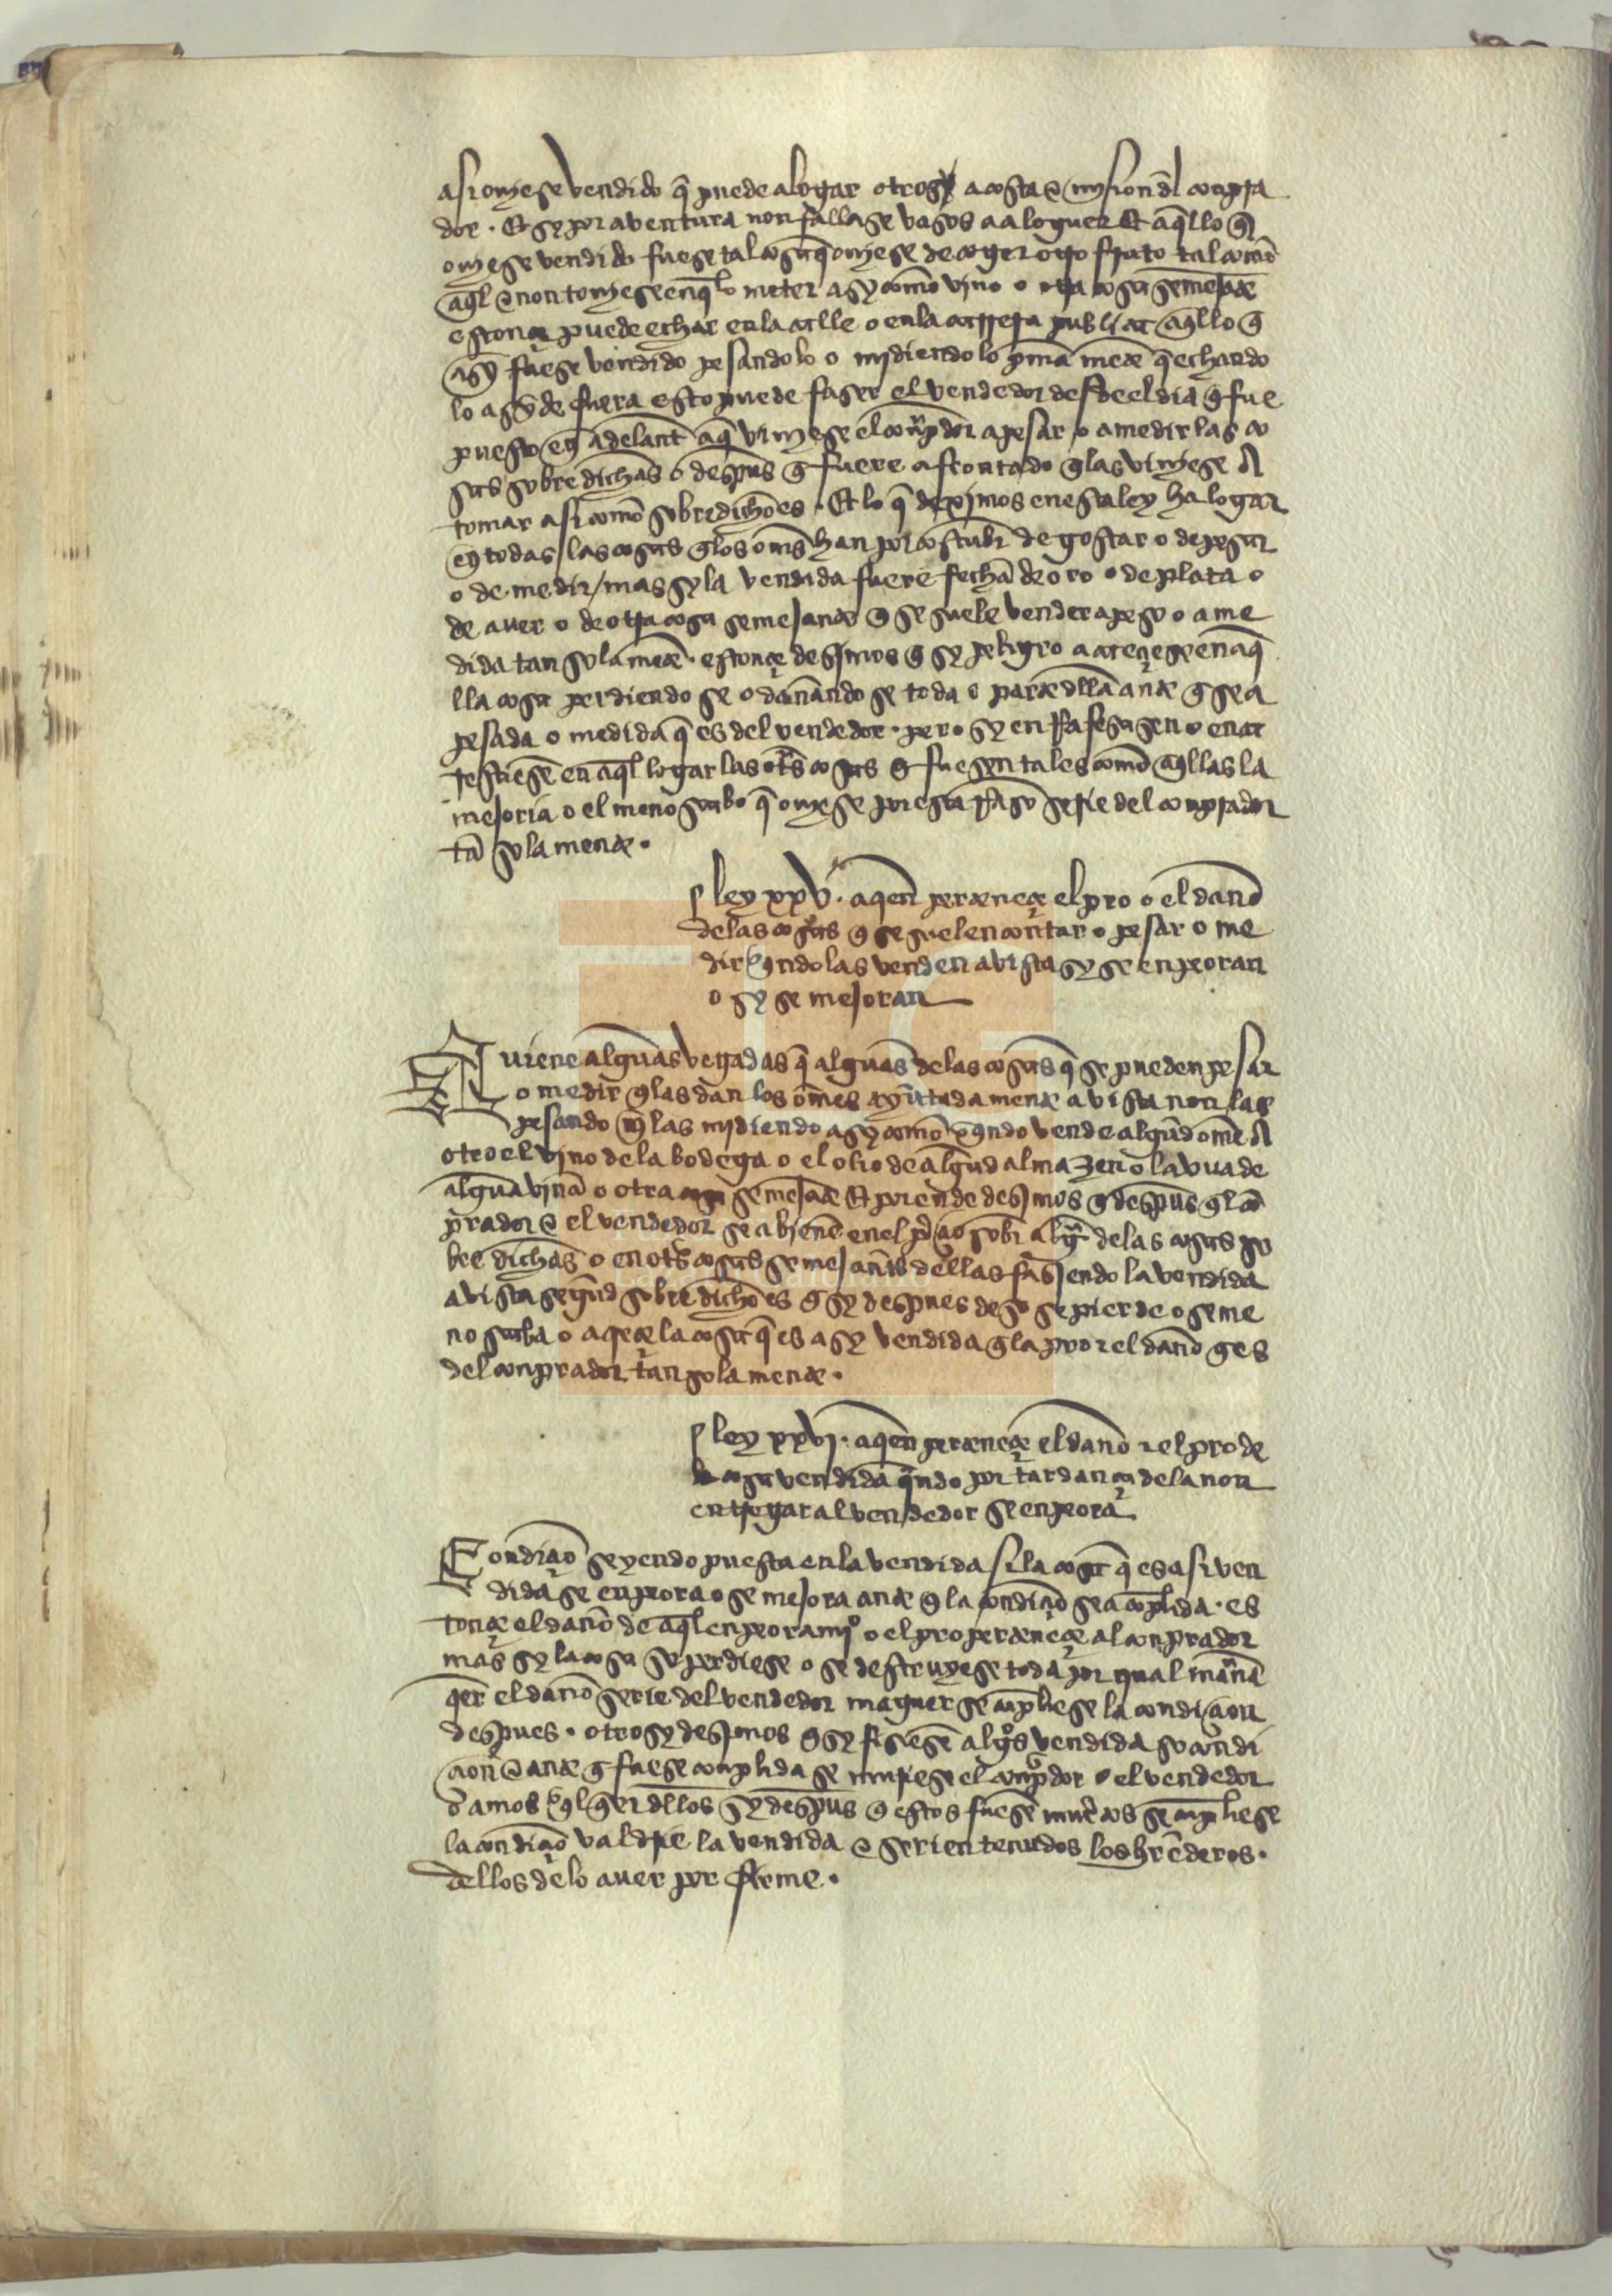 asi ouiese vendido q̃ puede alogar otrosy a costa ⁊ mision dl conpra
dor . Et sy por aventura non fallase vasos a aloguer Et aq̃llo q̃
ouiese vendido fuese tal cosa q̃ ouiese de coger otro fruto tal comõ
aq̃l ⁊ non touiese en q̃ lo meter asy comõ vino o otra cosa semejãte
estonçe puede echar en la calle o en la carrera publica aq̃llo q̃
asy fuese vendido pesandolo o midiendolo p̃mamẽte q̃ echando
lo asy de fuera esto puede faser el vendedor desde el dia q̃ fue
puesto en adelant a q̃ viniese el conp̃dor a pesar o a medir las co
sas sobre dichas o desp̃us q̃ fuere afrontado q̃ las viniese A
tomar asi comõ sobredichõ es . Et lo q̃ deximos en esta ley ha logar
en todas las cosas q̃ los om̃s han por costunbr̃ de gostar o de pesar
o de medir / mas sy la vendida fuere fecha de oro o de plata o
de auer o de otra cosa semejante q̃ se suele vender a peso o a me
dida tan solamẽte . estonçe desimos q̃ sy peligro acaeçiese en aq̃
lla cosa perdiendo se o dañando se toda o parte dlla ante q̃ sea
pesada o medida q̃ es del vendedor . pero sy enrrafesasen o enca
resçiesẽ en aq̃l logar las otr̃s cosas q̃ fuesen tales comõ aq̃llas la
mejoria o el menoscabo q̃ ouiese por esta rrasõ serie del conprador
tã sola mente .
ley xxv . a quen̄ perteneçe el pro o el danõ
delas cosas q̃ se suelen contar o pesar o me
dir q̃ndo las venden a vista sy se enpeoran
o sy se mejoran
Auiene algunãs vegadas q̃ algunãs delas cosas q̃ se pueden pesar
o medir q̃ las dan los om̃es ayũtada mente a vista non las
pesando nĩ las midiendo asy comõ q̃ndo vende algũd om̃e A
otro el vino de la bodega o el olio de algũd almazen o la vua de
algunã vinã o otra cosa semejãte Et por ende desimos q̃ desp̃us q̃l cõ
prador ⁊ el vendedor se abienẽ en el p̃çio sobr̃ alg̃ delas cosas so
bre dichas o en otr̃s cosas semejantes dellas fasiendo la vendida
a vista segũd sobre dichõ es q̃ sy despues deso se pierde o se me
noscaba o acreçe la cosa q̃ es asy vendida q̃ la pro ⁊ el danõ q̃ es
del conprador tan sola mente .
ley xxvj . a quen̄ perteneçe el danõ ⁊ el pro de
la cosa vendida q̃ndo por tardança dela non
entregar al vendedor se enpeora
Condiçiõ seyendo puesta en la vendida si la cosa q̃ es asi ven
dida se enpeora o se mejora ante q̃ la condiçiõ sea conplida . es
tonçe el danõ de aq̃l enpeoramiº o el pro perteneçe al conprador
mas sy la cosa se perdiese o se destruyese toda por qual man̄a
quer̃ el danõ serie del vendedor maguer se cunpliese la condiçion
despues . otrosy desimos q̃ sy fisiesẽ algõs vendida so condi
çion ⁊ ante q̃ fuese conplida se muriese el conp̃dor o el vendedor
o amos q̃lq̃er dllos sy desp̃us q̃ estos fuesẽ mũtos se cunpliese
la condiçiõ valdrie la vendida ⁊ serien tenudos los hr̃ederos .
dellos delo auer por firme .